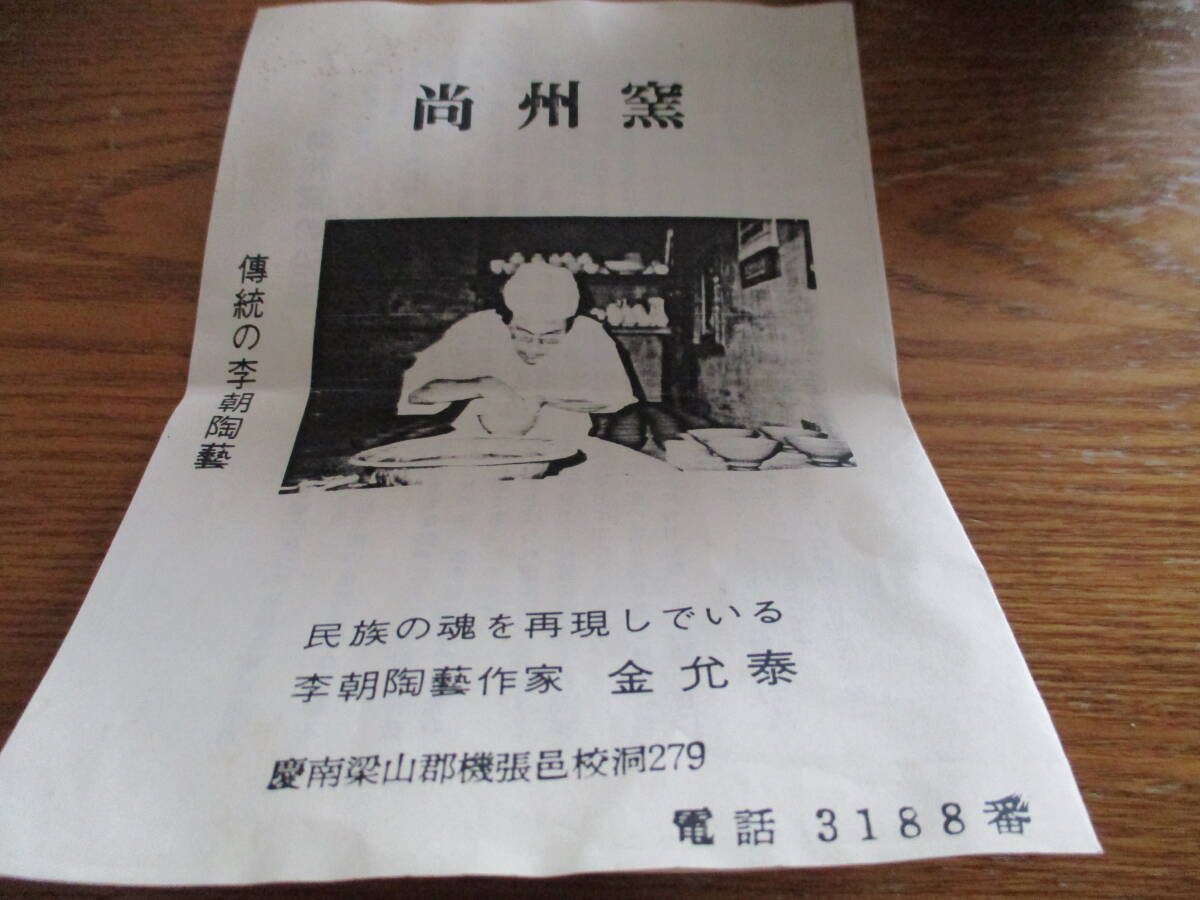 尚州窯
傳統の李朝陶藝
民族の魂を再現しでいる
李朝陶藝作家 金允泰
慶南梁山郡機張邑校洞279
電話 3188番